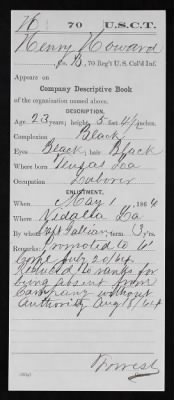 H 70 U.S.C.T.
Henry Howard
Co. B, 70 Reg't U.S. Col'd Inf.
Appears on
Company Descriptive Book
of the organization named above.
DESCRIPTION.
Age 23 years; height 5 feet 4½ inches.
Complexion Black
Eyes Black; hair Black
Where born Tensas Loa
Occupation Laborer
ENLISTMENT.
When May 1, 1864
Where Vidalia La
By whom term 3 y'rs.
Remarks: Promoted to
Corpl July 20/64
Reduced to ranks for
being absent from
Company without
Authority Aug 18/64
Forrest